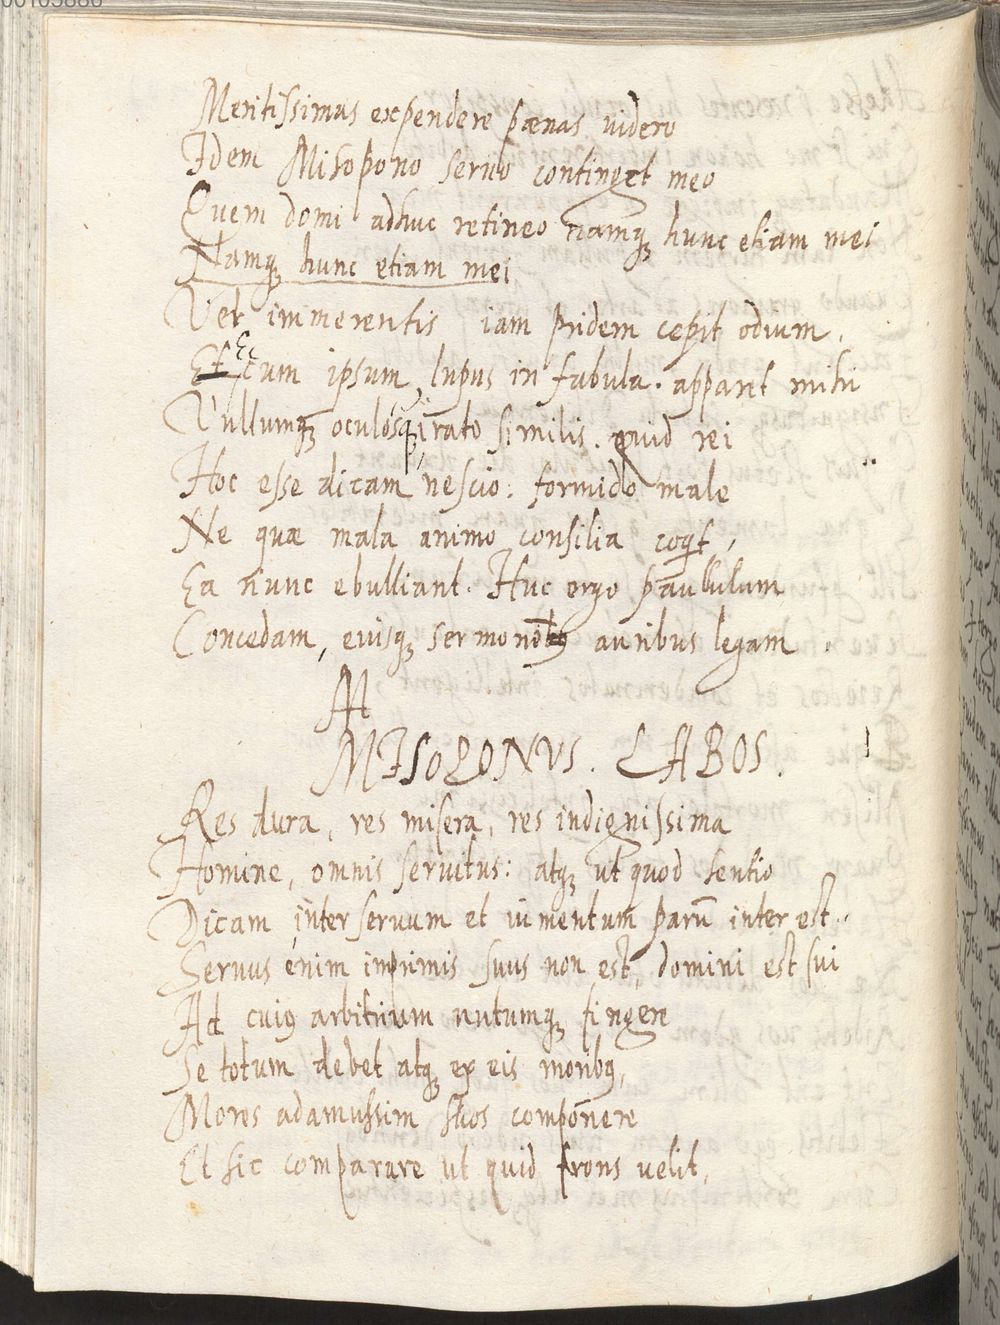 Meritissimas expendere pænas videro
Idem Misopono servo continget meo
Quem domi adhuc retineo namq̢ hunc etiam mei
Namq̢ hunc etiam mei
Vel immerentis iam pridem cepit odium.
Et Eccum ipsum, lupus in fabula. apparet mihi
Vultumq̢ oculosq̢ irato similis. quid rei
Hoc esse dicam nescio: formido male
Ne quæ mala animo consilia coq̄t,
Ea nunc ebulliant. Huc ergo paullulum
Concedam, eiusq̢ sermonē auribus legam.
M
MISOPONVS. LABOS.
Res dura, res misera, res indignissima
Homine, omnis servitus: atq̢ ut quod sentio
Dicam inter servum et iumentum parū interest.
Servus enim imprimis suus non est, domini est sui
Ad cuiꝯ arbitrium nutumq̢ fingere
Se totum debet atq̢ ex eis moribꝯ,
Mores adamussim suos componere
Et sic comparare ut quid frons velit,